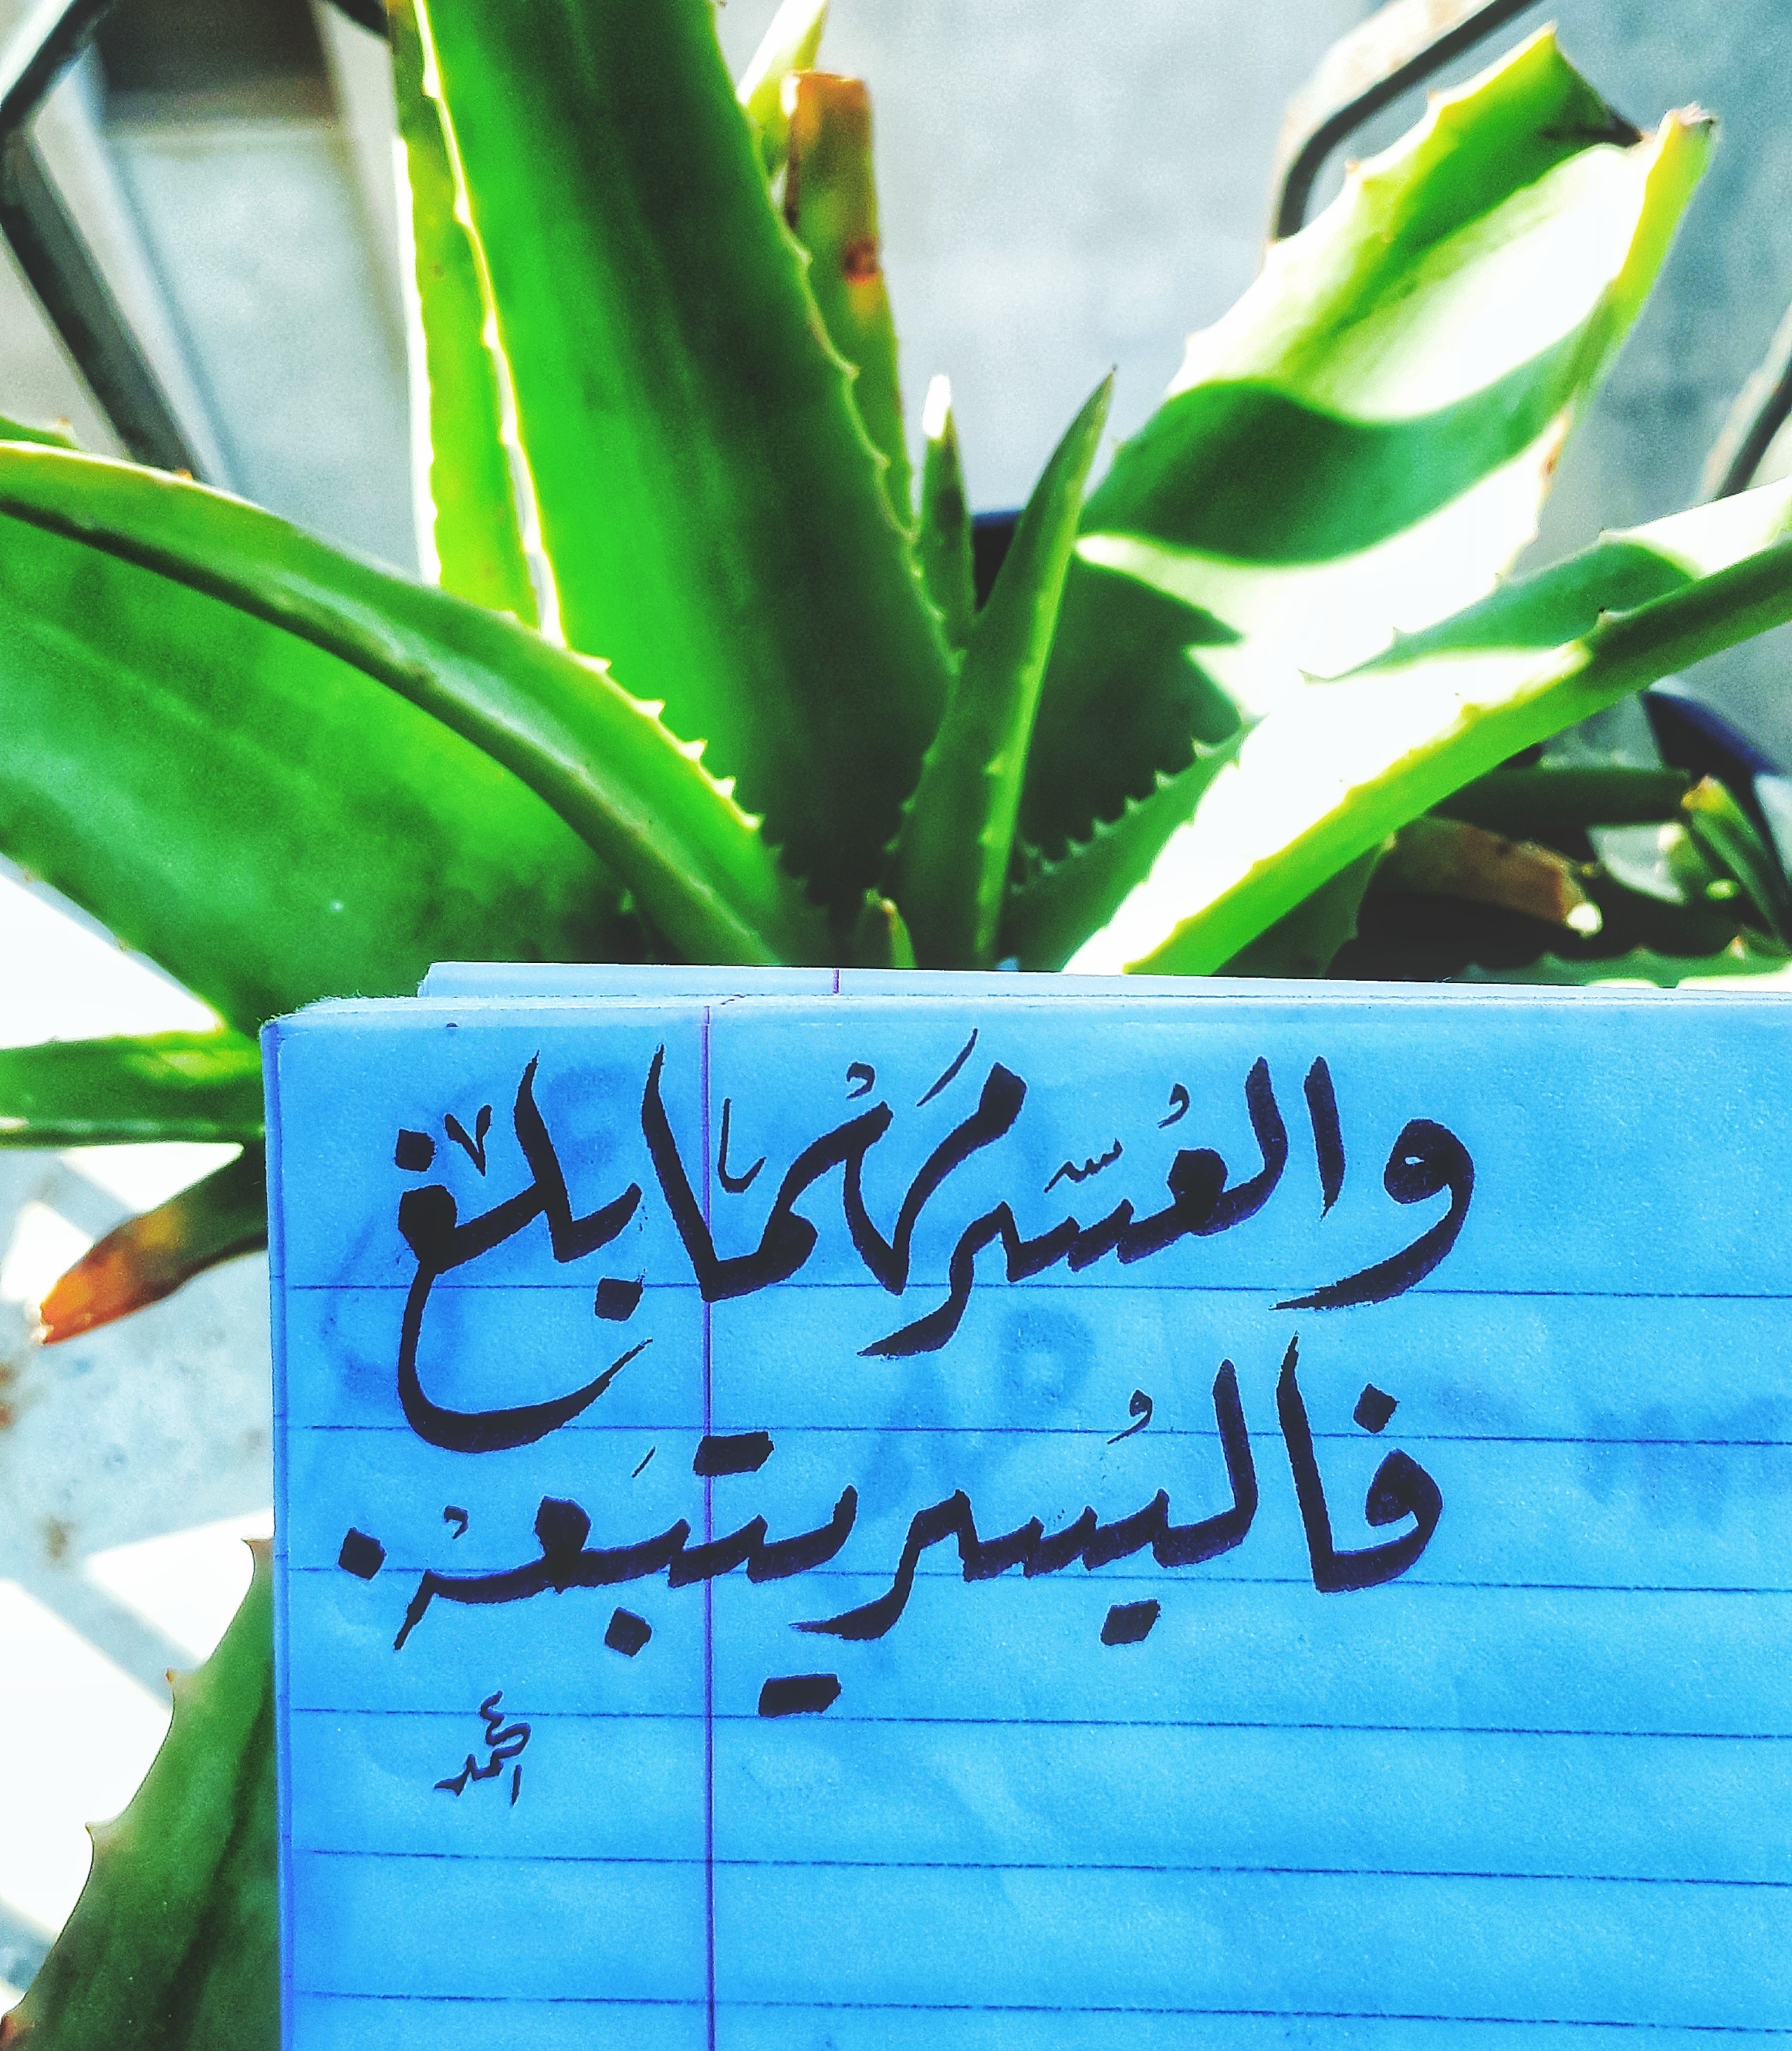 والعُسر مَهْما بلغ
فاليُسر يتبَعهْ.
أحمد